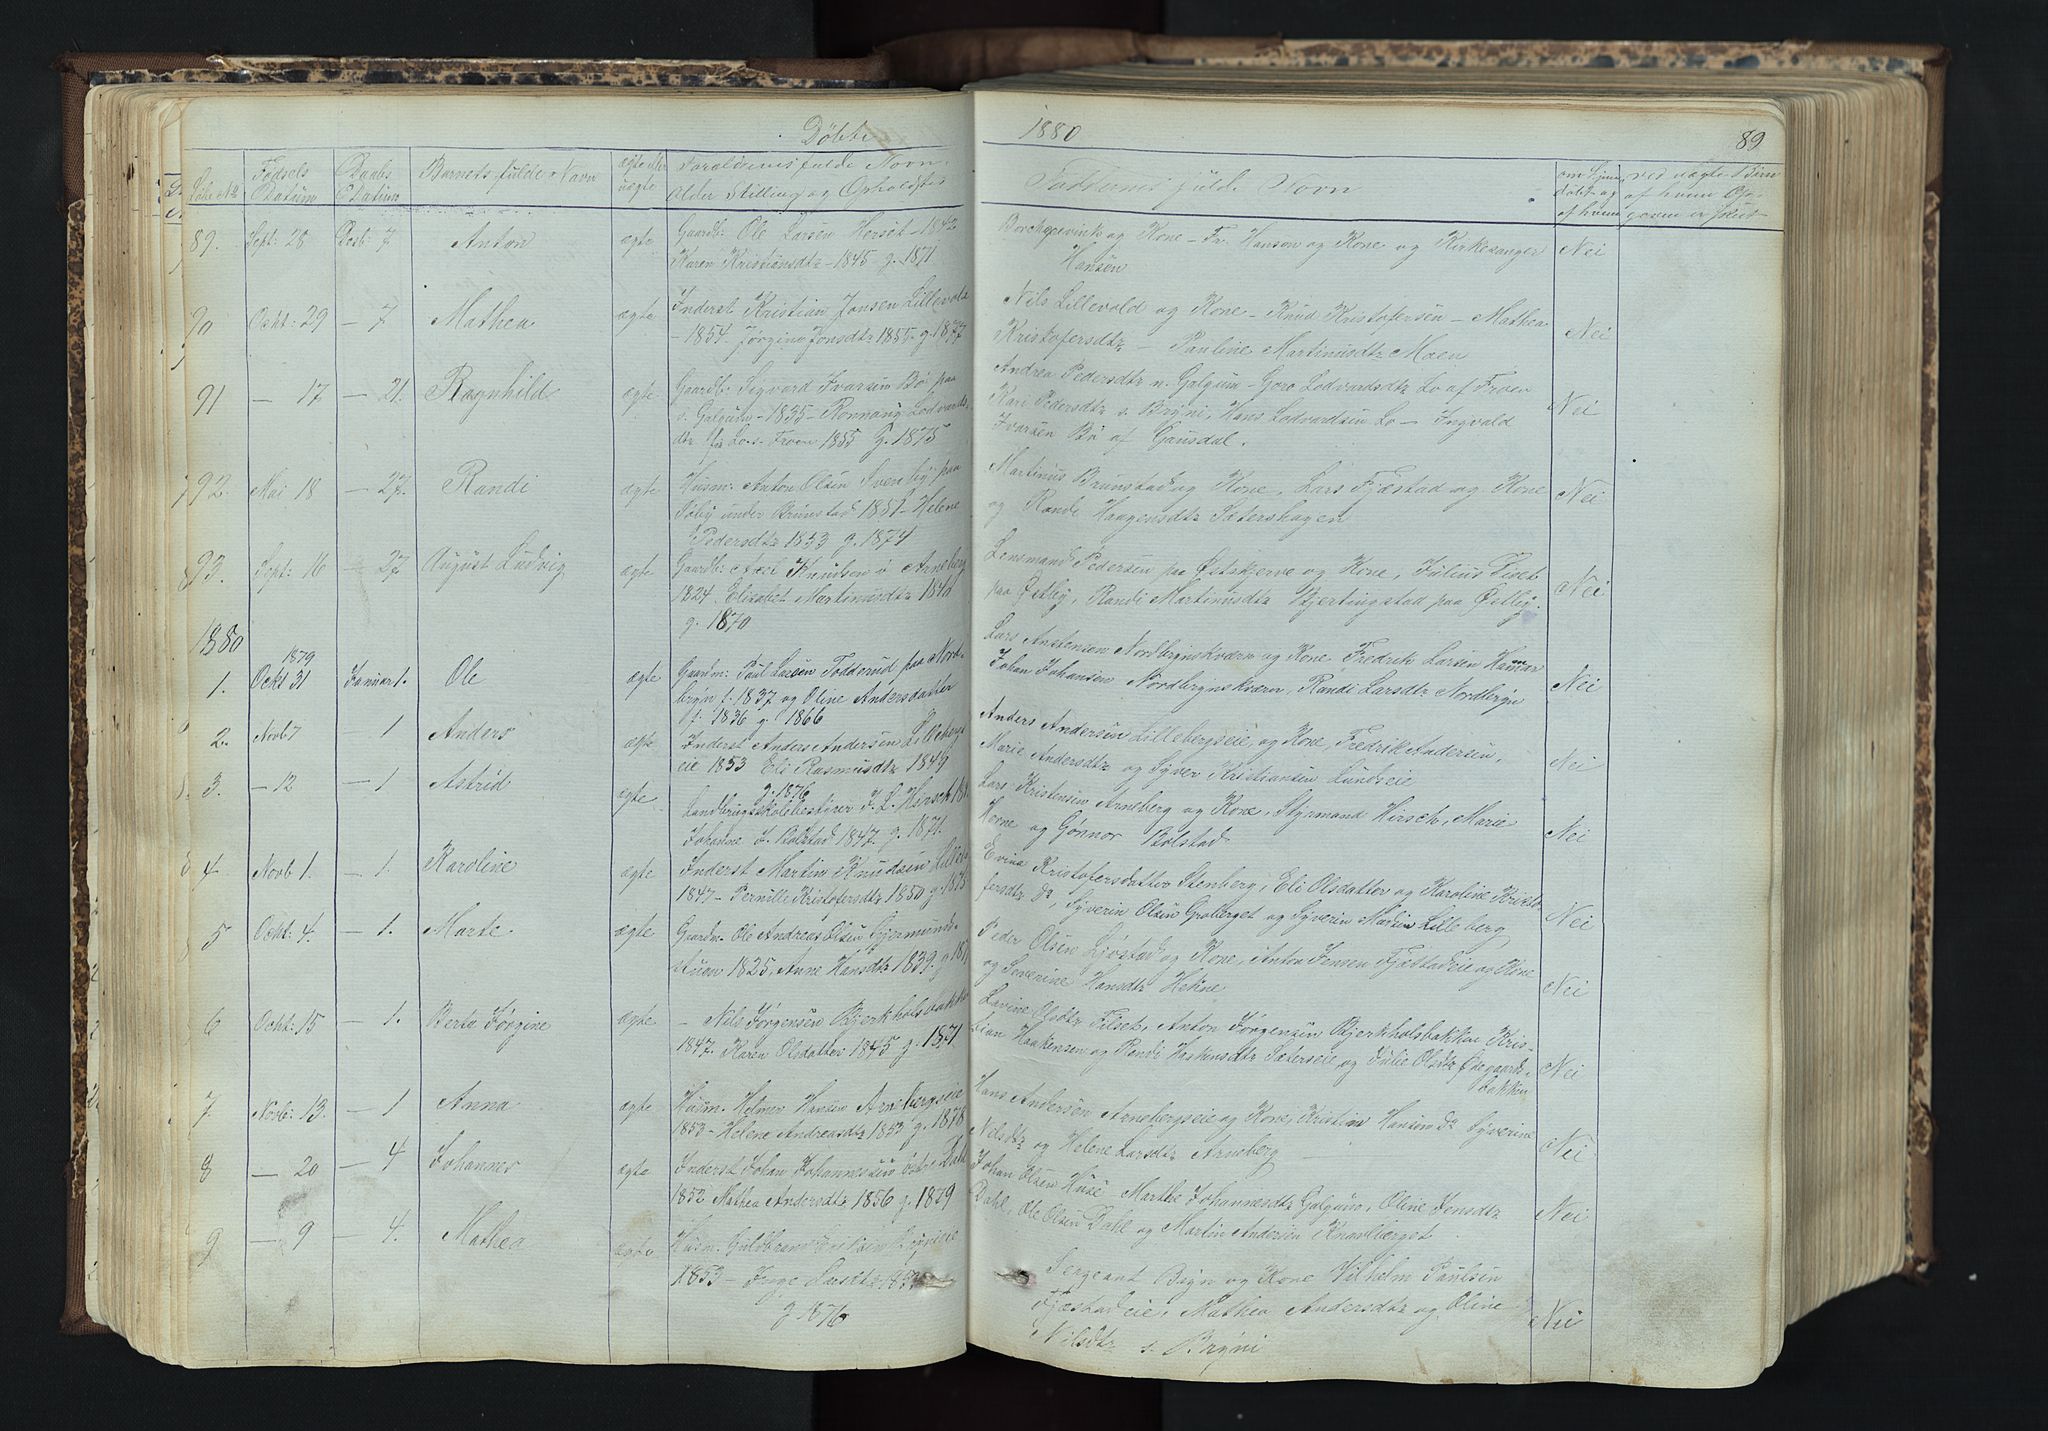 Døbte
1880
89
Løbe No
Fødsels Datum
Daabs Datum
Barnets fulde Navn
ægte el. uægte
Forældrenes fulde Navn
Alder Stilling og Opholdst.
Faddernes fulde Navn
89. Sept: 28 Desb: 7 Anton ægte Gaardb: Ole Larsen Horset - 1842
Karen Kristiansdtr - 1845 g. 1871
og Kone - Fr. Hanson og Kone og Kirkesanger
Hansen
Nei
90 Ocht: 29 — 7 Mathea ægte Inderst Kristian Jonsen Lillevold
- 1854 - Jørgine Jonsdtr 1855 - g. 1877
Nils Lillevold og Kone - Knud Kristofersen - Mathea
Kristofersdtr - Pauline Martinusdtr Moen
Nei
91 — 17 — 21. Ragnhild ægte Gaardb: Sigvard Ivarsen Bø paa
s. Galgum - 1835 - Ronnaug Lodvards-
dtr fra Lo s. Froen 1855 g. 1875
Andrea Pedersdtr n. Galgum - Goro Lodvardsdtr Lo af Froen
Kari Pedersdtr s. Bryni, Hans Lodvardsen Lo - Ingvald
Ivarsen Bø af Gausdal.
Nei
92. Mai 18 — 27. Randi ægte Husm: Anton Olsen Sveneby paa
Søby under Brunstad 1851 - Helene
Pedersdtr 1853 g. 1874
Martinus Brunstad og Kone, Lars Fjæstad og Kone
og Rande Haagensdtr Sætershagen
Nei
93. Sept: 16 — 27 August Ludvig ægte Gaardb: Axel Knudsen ø Arneberg
1824. Elisabet Martinusdtr 1840
g. 1870
Lensmand Pedersen paa Østskjerve og Kone, Julius Tiset
paa Østby, Randi Martinusdtr Bjertingstad paa Østby.
Nei
1880
1879
1. Ockt 31 Januar 1. Ole ægte Gaardm: Paul Larsen Todderud paa Nord-
bryn f. 1837 og Oline Andersdatter
f. 1836 g. 1866
Lars Anstensen Nordbrynskværn og Kone Fredrik Larsen Hamar
Johan Johansen Nordbrynskværn, Randi Larsdtr Nordbryn
Nei
2. Novb 7 — 1 Anders ægte Inderst Anders Andersen Lillebergs
eie 1853 Eli Rasmusdtr 1849
g. 1876
Anders Andersen Lillebergseie, og Kone, Fredrik Andersen,
Marie Andersdtr og Syver Kristiansen Lundseie
Nei
3. — 12 — 1 Astrid ægte Landbrugsskolebestirer J. L. Hirsch
Johanne L. Bolstad 1847. g. 1871.
Lars Kristensen Arneberg og Kone, Styrmand Hirsch, Marie
Horne og Gønnor Bolstad
Nei
4 Novb 1. — 1. Karoline ægte Inderst Martin Knudsen
1847 - Pernille Kristofersdtr 1850 g. 1875
Evina Kristofersdatter Stenberg, Eli Olsdatter og Karoline Kristo
fersdtr do, Syverin Olsen Groberget og Syverin Madsen Lilleberg
Nei
5 Ocht: 4. — 1. Marte ægte Gaardm. Ole Andreas Olsen Gjermunds-
stuen 1825, Anne Hansdtr 1839. g.
Peder Olsen Ljøstad og Kone, Anton Jensen Fjæstadeie og Kone
og Severine Hansdtr Hekne
Nei
6 Ocht: 15 — 1. Berte Jørgine ægte — Nils Jørgensen Bjerkholsbakken
1847. Karen Olsdatter 1845 g. 1871
Lavine Olsdtr Filseth, Anton Jørgensen Bjerkholsbakken Kris-
tian Haakensen og Randi Haakensdtr Sæterseie, og Julie Olsdtr Ødegaards-
bakken
Nei
7 Novb: 13. — 1 Anna ægte Husm. Helmer Hansen Arnebergseie
1853 - Helene Andreasdtr 1853 g. 1878
Hans Andersen Arnebergseie og Kone, Kristian Hansen do Syverine
Nilsdtr og Helene Larsdtr Arneberg
Nei
8 — 20 — 4 Johannes ægte Inderst Johan Johannessen østre Dahl
1852 Mathea Andersdtr 1856 g. 1879
Johan Olsen Huse - Marthe Johannesdtr Galgum, Oline Jensdtr
Dahl, Ole Olsen Dahl og Martin Andersen Knardberget
Nei
9 — 9 — 4. Mathea ægte Husm. Guldbrand Brynieie
1853 - Inge Larsdtr
g 1876
Sergeant Bryn og Kone Vilhelm Paulsen
Fjæstadeie, Mathea Andersdtr og Oline
Nilsdtr s. Bryni
Nei